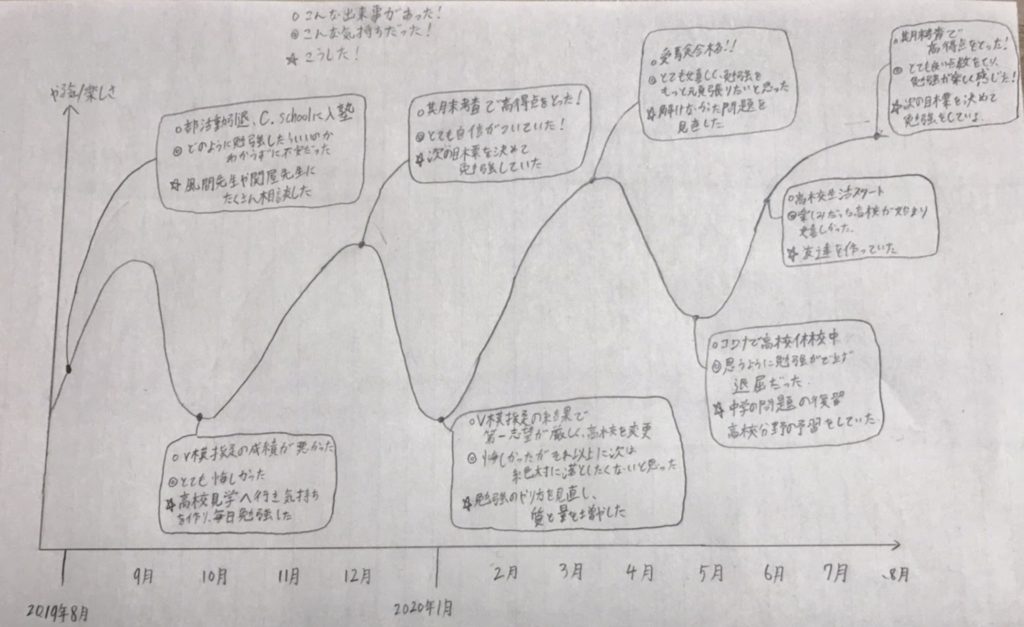 ○ こんな出来事があった!
◎ こんな気持ちだった!
☆ こうした!
やる気/楽しさ
○部活動引退、C. schoolに入塾
◎ どのように勉強したらいいのか
わからずに不安だった
☆ 風間先生や関屋先生に
たくさん相談した
○期末考査で高得点をとった!
◎とても自信がついていた!
☆ 次の目標を決めて
勉強していた
○受験合格!!
◎とても嬉しく、勉強を
もっと頑張りたいと思った
☆解けなかった問題を
見直した
○期末考査で
高得点をとった!
◎とても良い点数をとり、
勉強が楽しく感じた!
☆次の目標を決めて
勉強をしている
○高校生活スタート
◎楽しみだった高校が始まり
嬉しかった。
☆友達を作っていた
○コロナで高校休校中
◎思うように勉強ができず
退屈だった
☆中学の問題の復習
高校分野の予習をしていた
○V模擬の成績が悪かった
◎とても悔しかった
☆高校見学へ行き気持ち
を作り、毎日勉強した
○V模擬の結果で
第一志望が厳しく、高校を変更
◎ 悔しかったがそれ以上に次は
絶対に落としたくないと思った
☆ 勉強のやり方を見直し、
質と量を増やした
9月 10月 11月 12月 2月 3月 4月 5月 6月 7月 8月
2019年8月 2020年1月